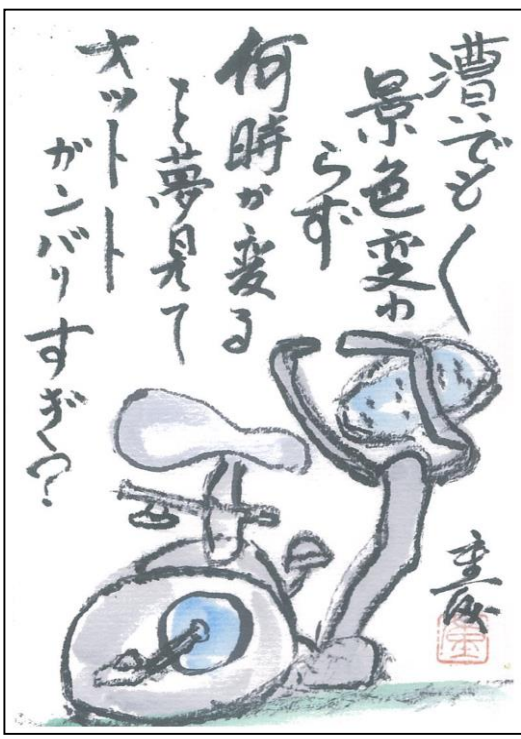 漕いでも〱
景色変わ
らず
何時か変る
こと夢見て
オットト
ガンバリすぎ?